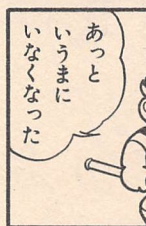 あっと
いうまに
いなくなった